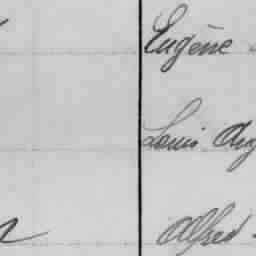 Eugène
Louis Aug
Alfred